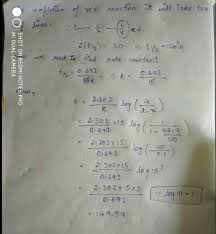 completion of 75% reaction it will take two
lives.
2(t½) = 30 ∴ t½ = 15min
we need to find rate constant
t½ = 0.693/k ∴ k = 0.693/15
t = 2.303/k log(a/a-x)
= 2.303×15/0.693 log(1/1-99.9/100)
= 2.303×15/0.693 log(100/0.1)
= 2.303×15/0.693 log10³
= 2.303×15×3/0.693 ∵ log10=1
= 149.54
SHOT ON REDMI NOTE 5 PRO
MI DUAL CAMERA